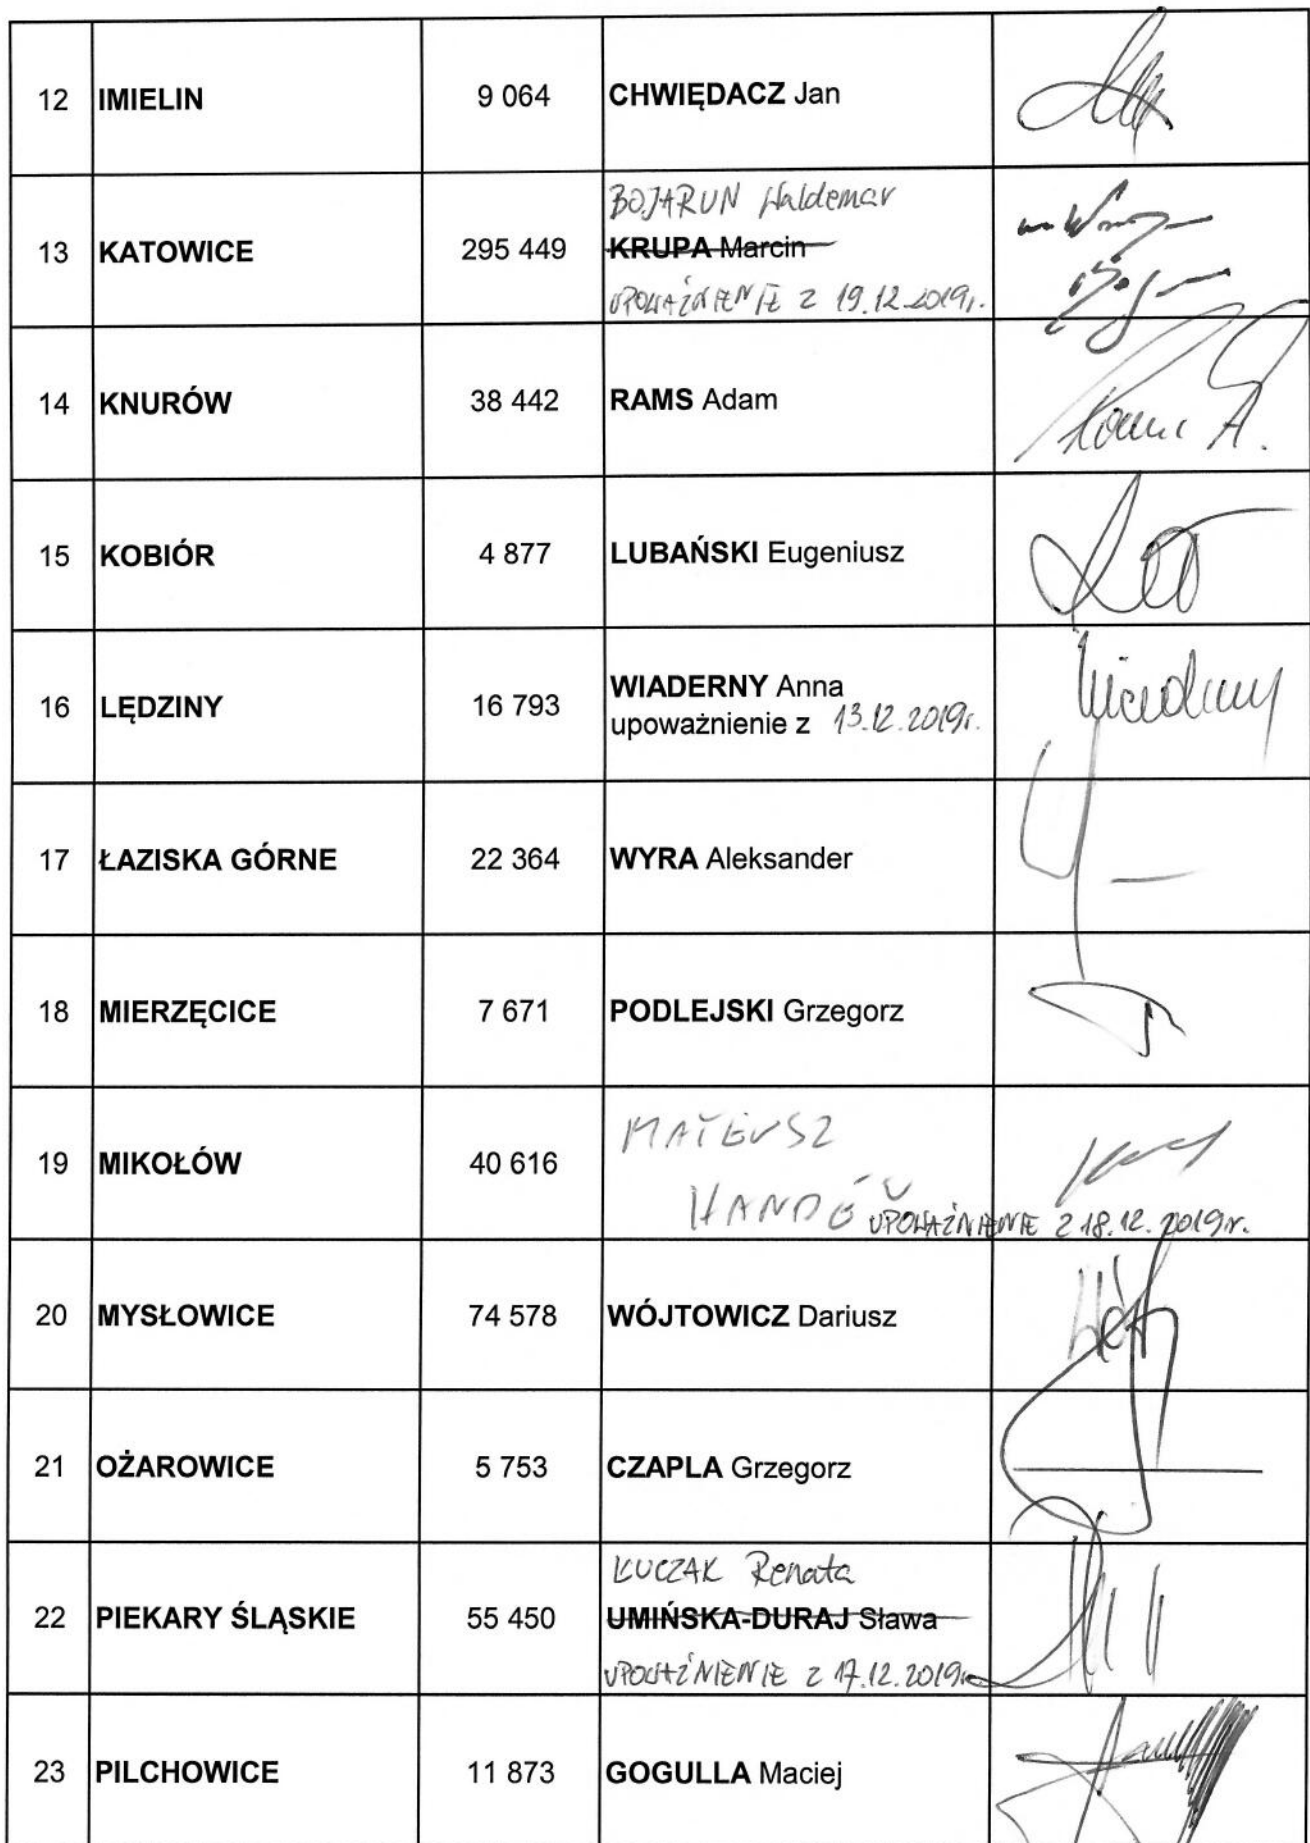 12 IMIELIN 9 064 CHWIĘDACZ Jan
BOJARUN Waldemar
13 KATOWICE 295 449 KRUPA Marcin
UPOWAŻNIENIE Z 19.12.2019r.
14 KNURÓW 38 442 RAMS Adam
15 KOBIÓR 4 877 LUBAŃSKI Eugeniusz
16 LĘDZINY 16 793 WIADERNY Anna
upoważnienie z 13.12.2019r.
17 ŁAZISKA GÓRNE 22 364 WYRA Aleksander
18 MIERZĘCICE 7 671 PODLEJSKI Grzegorz
MATEUSZ
19 MIKOŁÓW 40 616
UPOWAŻNIENIE Z 18.12.2019r.
20 MYSŁOWICE 74 578 WÓJTOWICZ Dariusz
21 OŻAROWICE 5 753 CZAPLA Grzegorz
KUCZAK Renata
22 PIEKARY ŚLĄSKIE 55 450 UMIŃSKA-DURAJ Sława
UPOWAŻNIENIE Z 17.12.2019r.
23 PILCHOWICE 11 873 GOGULLA Maciej